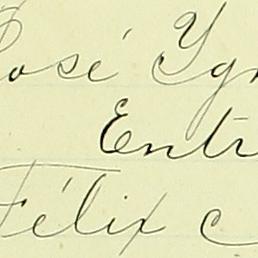 José Yg
Entr
Félix C